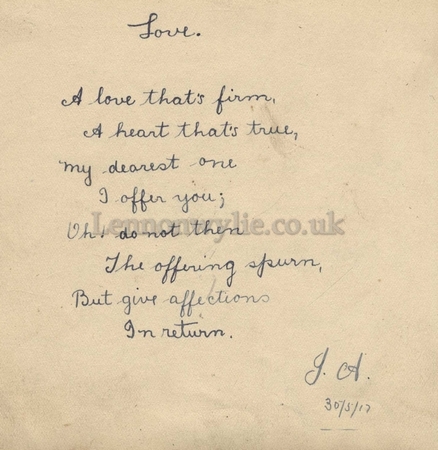 Love.
A love that's firm,
A heart that's true,
My dearest one
I offer you;
Lennonwylie.co.uk
Oh. do not then
The offering spurn,
But give affections
In return.
J. A.
30/5/17